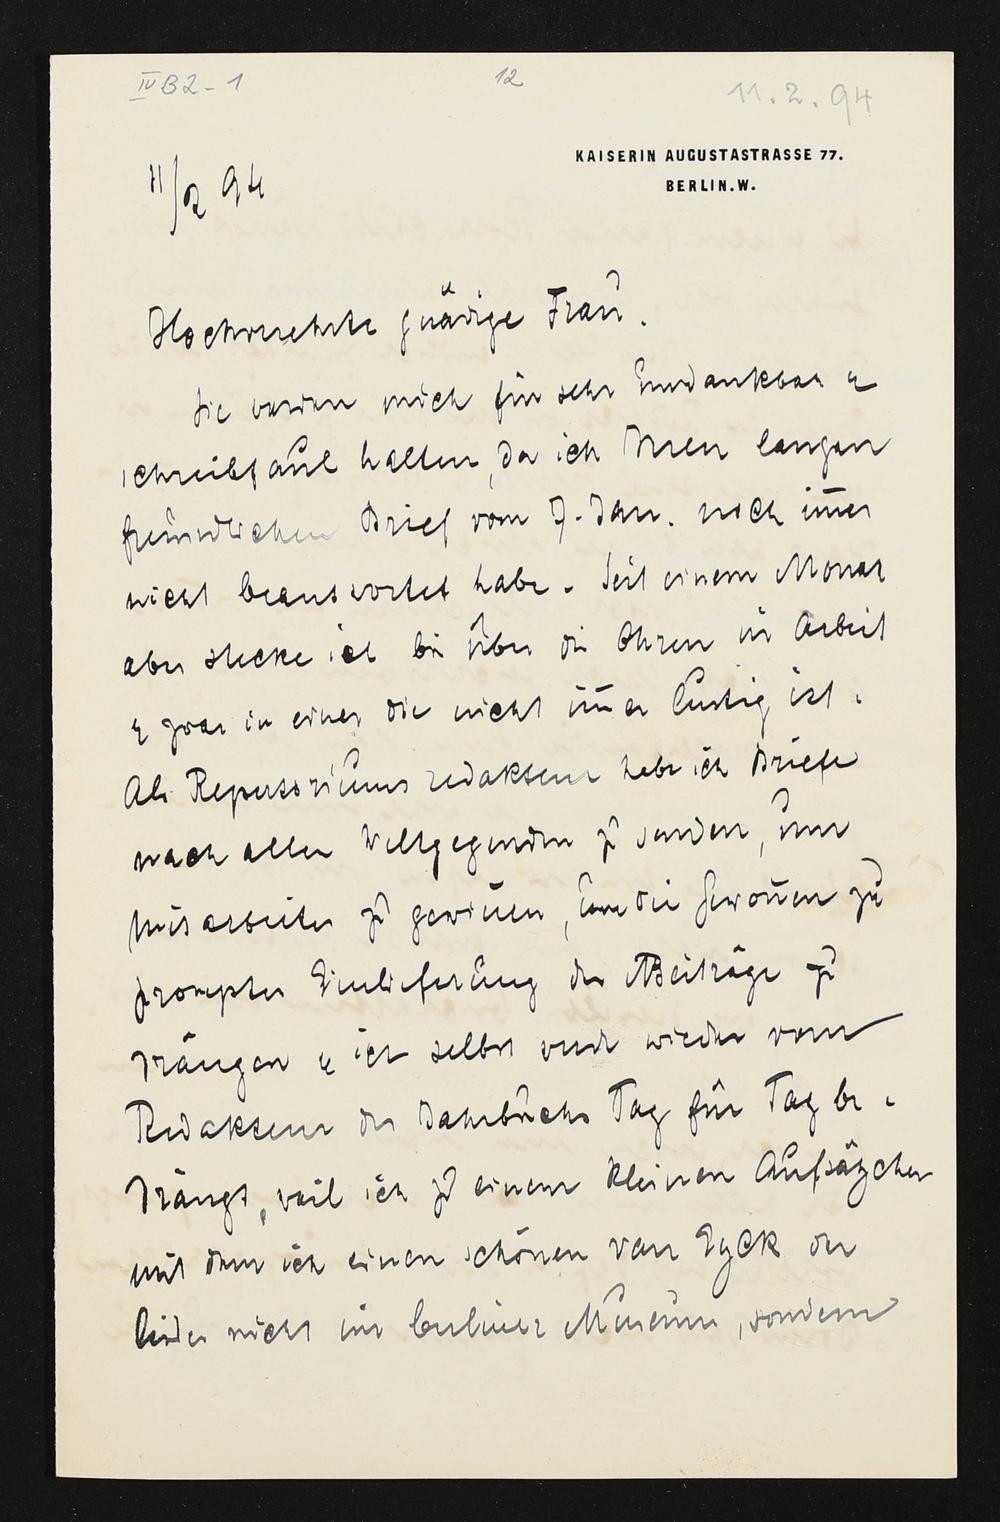 IV B2 - 1
12
11. 2. 94
KAISERIN AUGUSTASTRASSE 77.
BERLIN.W.
11/2 94
Hochverehrte gnädige Frau.
Sie werden mich für sehr undankbar u
schreibfaul halten, da ich Ihren langen
freundlichen Brief vom 7. Jan. noch im̄er
nicht beantwortet habe. Seit einem Monat
aber stecke ich bis über die Ohren in Arbeit
u zwar in einer die nicht im̄er lustig ist.
Als Repertoriumsredakteur habe ich Briefe
nach allen Weltgegenden zu senden, um
Mitarbeiter zu gewin̄en, um die Gewon̄en zu
prompter Einlieferung der Beiträge zu
drängen u ich selbst werde wieder vom
Redakteur des Jahrbuchs Tag für Tag be-
drängt, weil ich zu einem kleinen Aufsätzchen
mit dem ich einen schönen van Eyck der
leider nicht im berliner Museum, sondern